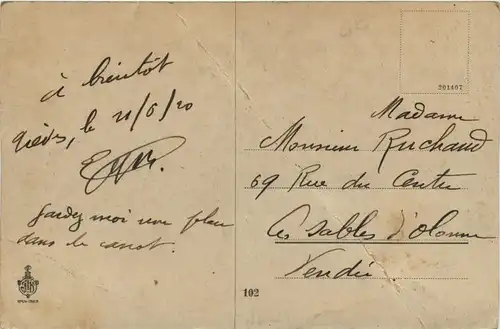 à bientôt
Gièvres, le 21/6/20
Gardez moi une place
dans le canot.
201407
Madame
Monsieur Ruchaud
69 Rue du Centre
Les Sables d'Olonne
Vendée
102